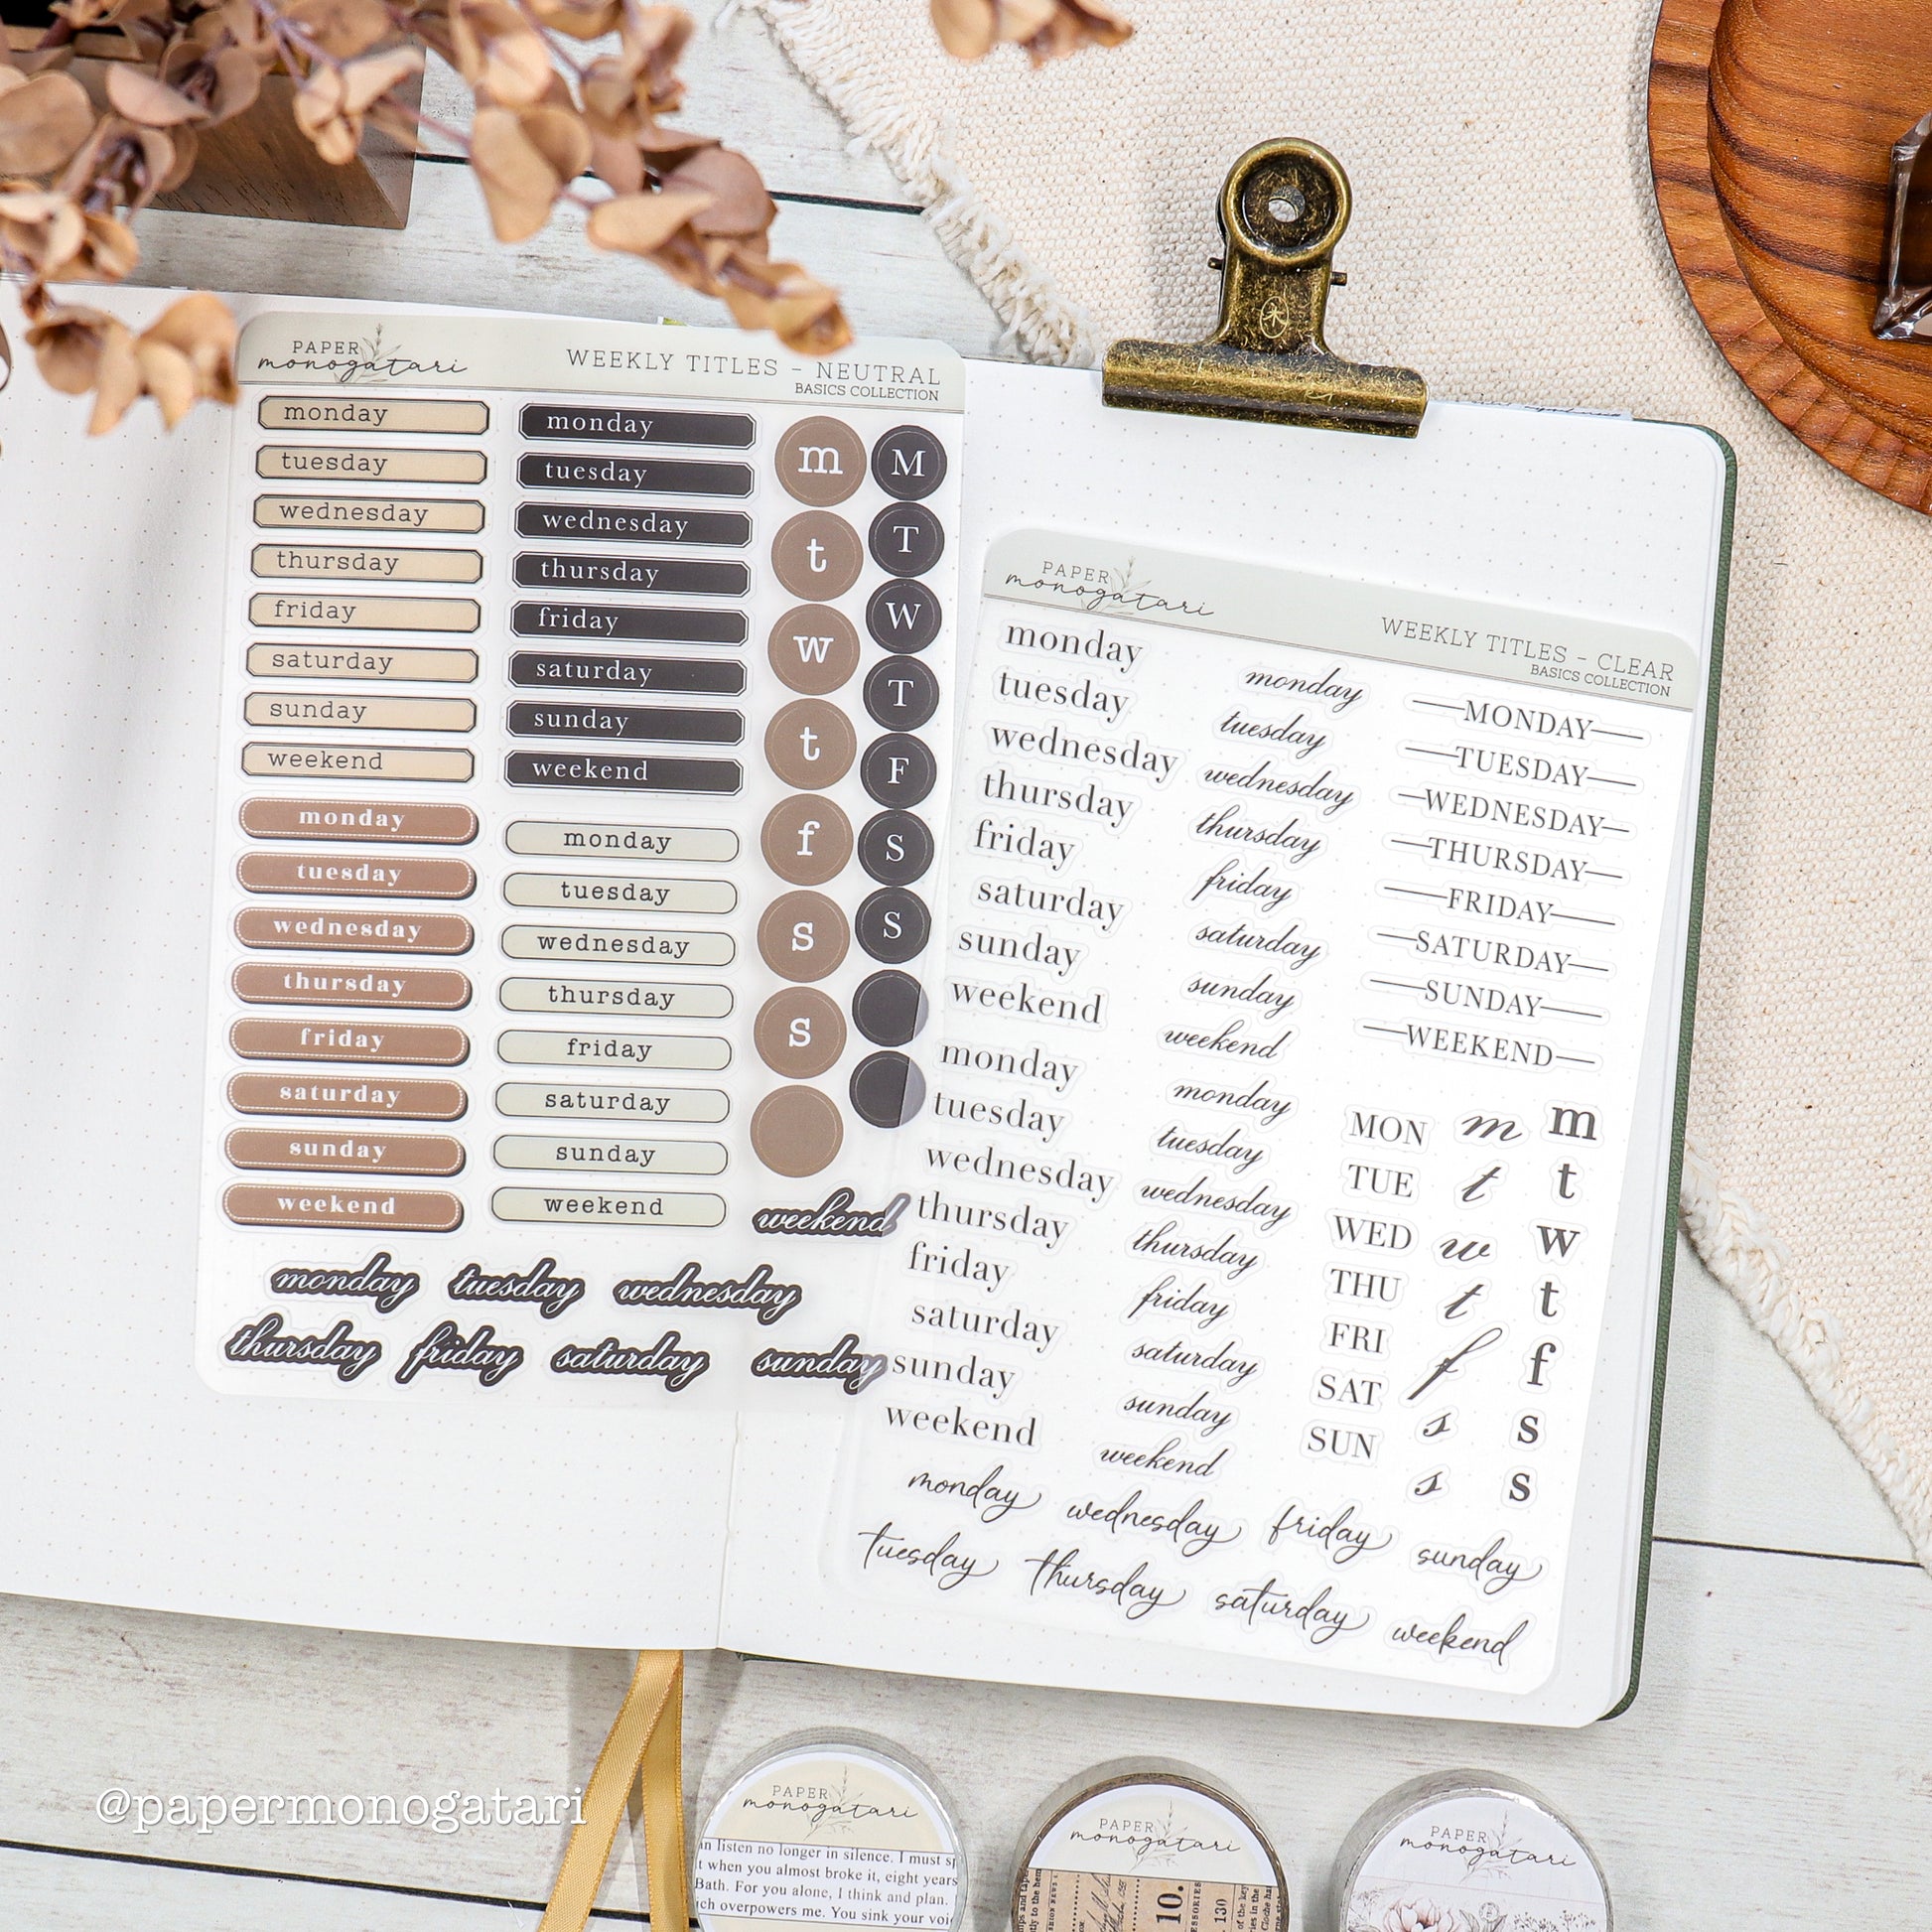 PAPER
monogatari
WEEKLY TITLES - NEUTRAL
BASICS COLLECTION
monday
tuesday
wednesday
thursday
friday
saturday
sunday
weekend
monday
tuesday
wednesday
thursday
friday
saturday
sunday
weekend
m
t
w
t
f
s
s
M
T
W
T
F
S
S
monday
tuesday
wednesday
thursday
friday
saturday
sunday
weekend
monday
tuesday
wednesday
thursday
friday
saturday
sunday
weekend
weekend
monday tuesday wednesday
thursday friday saturday sunday
PAPER
monogatari
WEEKLY TITLES - CLEAR
BASICS COLLECTION
monday
tuesday
wednesday
thursday
friday
saturday
sunday
weekend
monday
tuesday
wednesday
thursday
friday
saturday
sunday
weekend
MONDAY
TUESDAY
WEDNESDAY
THURSDAY
FRIDAY
SATURDAY
SUNDAY
WEEKEND
monday
tuesday
wednesday
thursday
friday
saturday
sunday
weekend
monday
tuesday
wednesday
thursday
friday
saturday
sunday
weekend
MON
TUE
WED
THU
FRI
SAT
SUN
m
t
w
t
f
s
s
m
t
w
t
f
s
s
monday wednesday friday sunday
tuesday thursday saturday weekend
@papermonogatari
PAPER
monogatari
an listen no longer in silence. I must
t when you almost broke it, eight years
Bath. For you alone, I think and plan.
ch overpowers me. You sink your
PAPER
monogatari
10.
130
PAPER
monogatari